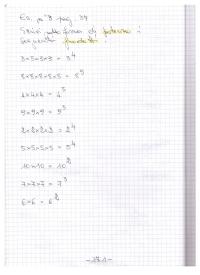 Es. n° 3 pag. 39
Scrivi sotto forma di potenza i
seguenti prodotti:
3×3×3×3 = 3⁴
8×8×8×8×8 = 8⁵
4×4×4 = 4³
9×9×9 = 9³
2×2×2×2 = 2⁴
5×5×5×5 = 5⁴
10×10 = 10²
7×7×7 = 7³
6×6 = 6²